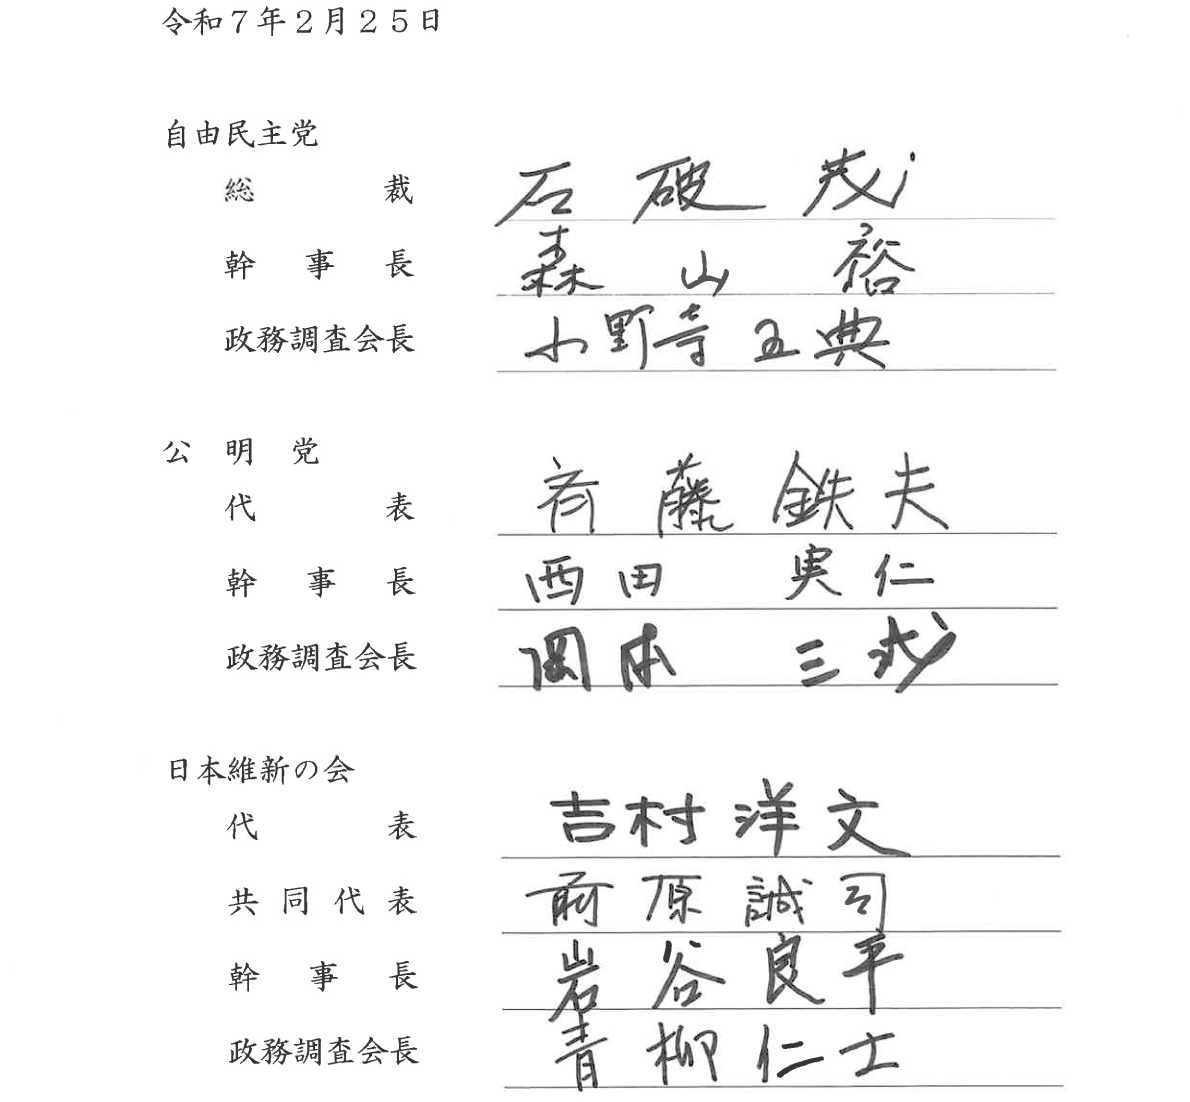 令和７年２月２５日
自由民主党
総裁 石破茂
幹事長 森山裕
政務調査会長 小野寺五典
公明党
代表 斉藤鉄夫
幹事長 西田実仁
政務調査会長 岡本三成
日本維新の会
代表 吉村洋文
共同代表 前原誠司
幹事長 岩谷良平
政務調査会長 青柳仁士